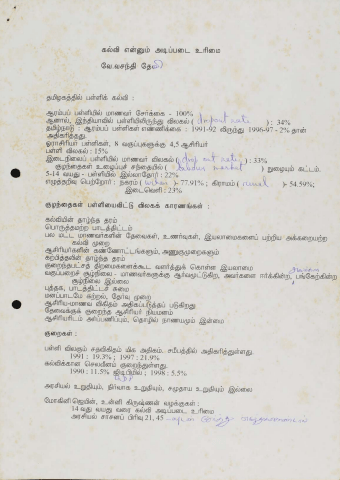 கல்வி என்னும் அடிப்படை உரிமை
வே.வசந்தி தேவி
தமிழகத்தில் பள்ளிக் கல்வி :
ஆரம்பப் பள்ளியில் மாணவர் சேர்க்கை - 100%
ஆனால், இந்தியாவில் பள்ளியிலிருந்து விலகல் (Dropout rate) : 34%
தமிழ்நாடு : ஆரம்பப் பள்ளிகள் எண்ணிக்கை : 1991-92 லிருந்து 1996-97 - 2% தான்
அதிகரித்தது.
ஓராசிரியர் பள்ளிகள், 8 வகுப்புகளுக்கு 4,5 ஆசிரியர்
பள்ளி விலகல் : 15%
இடைநிலைப் பள்ளியில் மாணவர் விலகல் (drop out rate) : 33%
குழந்தைகள் உழைப்புச் சந்தையில் (labour market) நுழையும் கட்டம்.
5-14 வயது - பள்ளியில் இல்லாதோர் : 22%
எழுத்தறிவு பெற்றோர் : நகரம் (urban) - 77.91% ; கிராமம் (rural) - 54.59%;
இடைவெளி : 23%
குழந்தைகள் பள்ளியைவிட்டு விலகக் காரணங்கள் :
கல்வியின் தாழ்ந்த தரம்
பொருத்தமற்ற பாடத்திட்டம்
பல மட்ட மாணவர்களின் தேவைகள், உணர்வுகள், இயலாமைகளைப் பற்றிய அக்கறையற்ற
கல்வி முறை
ஆசிரியர்களின் கண்ணோட்டங்களும், அணுகுமுறைகளும்
கற்பித்தலின் தாழ்ந்த தரம்
குறைந்தபட்சத் திறமைகளைக்கூட வளர்த்துக் கொள்ள இயலாமை
வகுப்பறைச் சூழ்நிலை - மாணவர்களுக்கு ஆர்வமூட்டுகிற, அவர்களை ஈர்க்கின்ற, பங்கேற்கின்ற
சூழ்நிலை இல்லை
புத்தக, பாடத்திட்டச் சுமை
மனப்பாடமே கற்றல், தேர்வு முறை
ஆசிரிய-மாணவ விகிதம் அதிகப்படுத்தப் படுகிறது
தேவைக்குக் குறைந்த ஆசிரியர் நியமனம்
ஆசிரியரிடம் அர்ப்பணிப்பும், தொழில் நாணயமும் இல்லை
குறைகள் :
பள்ளி விலகும் சதவிகிதம் மிக அதிகம். சமீபத்தில் அதிகரித்துள்ளது.
1991 : 19.3% ; 1997 : 21.9%
கல்விக்கான செலவினம் குறைந்துள்ளது.
1990 : 11.5% ஜிடிபியில் ; 1998 : 5.5%
அரசியல் உறுதியும், நிர்வாக உறுதியும், சமுதாய உறுதியும் இல்லை
மோகினி ஜெயின், உன்னி கிருஷ்ணன் வழக்குகள் :
14 வது வயது வரை கல்வி அடிப்படை உரிமை
அரசியல் சாசனப் பிரிவு 21, 45 -